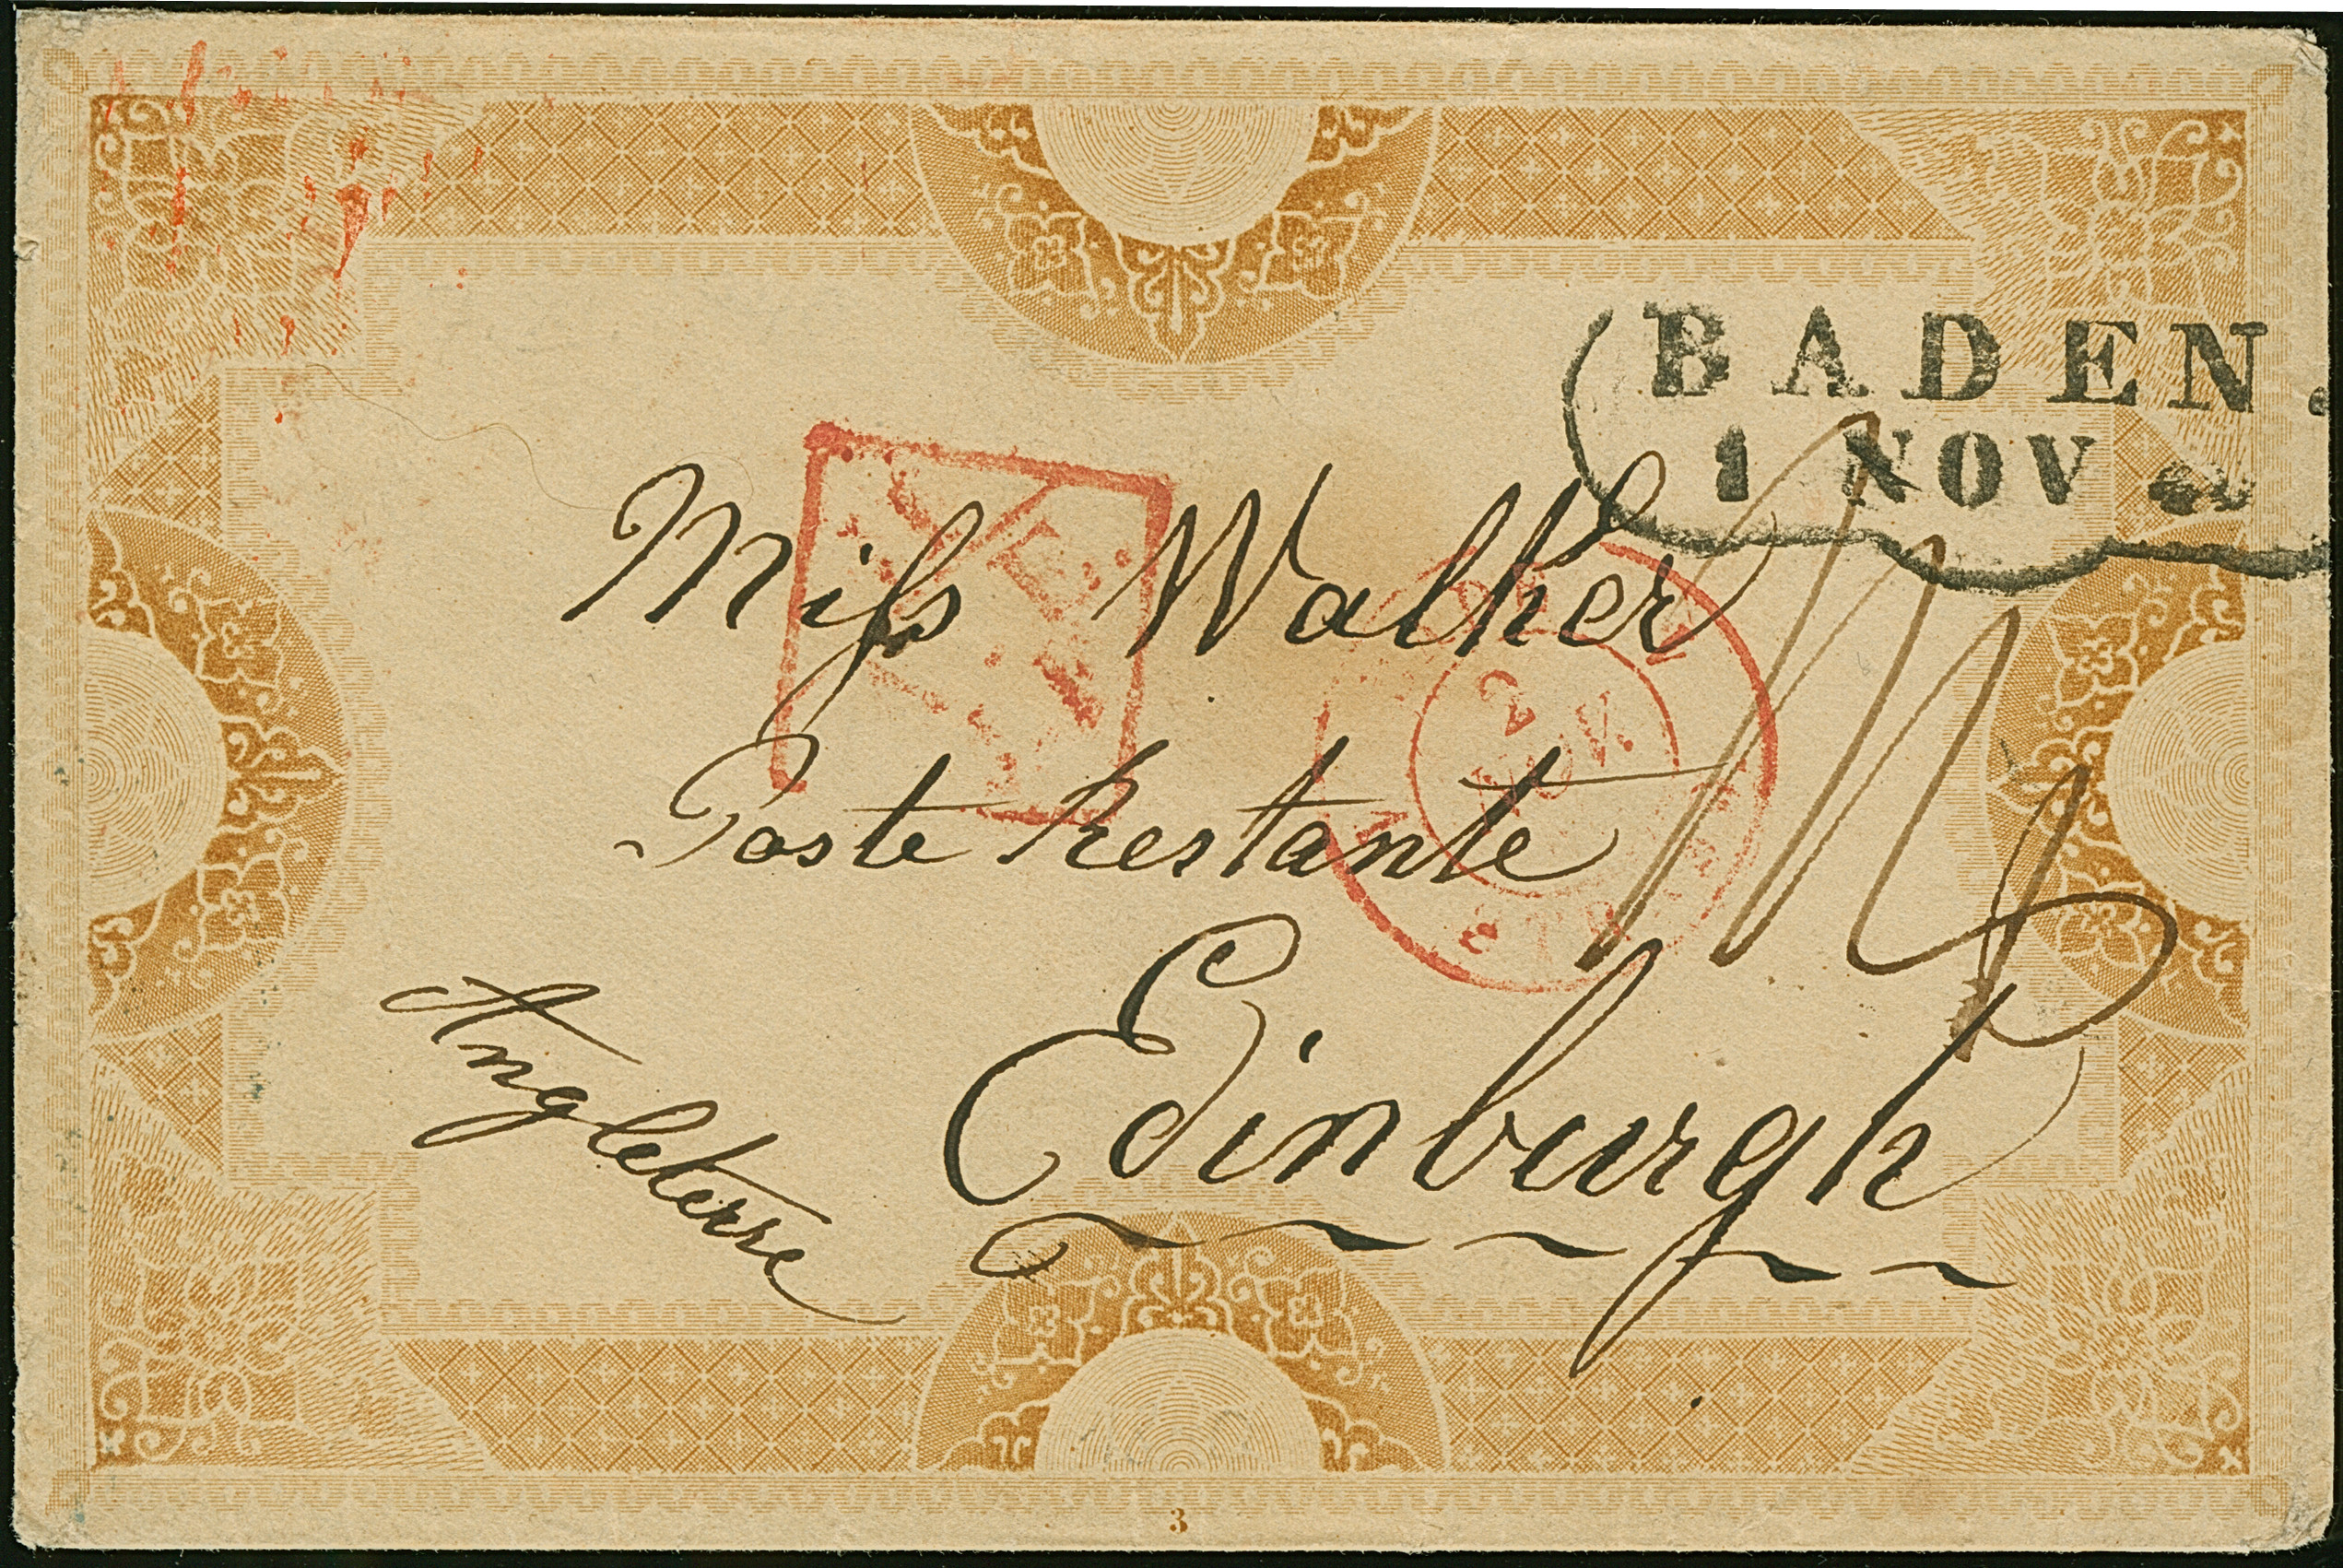 BADEN.
1 NOV
Miss Walker
Poste Restante
Edinburgh
Angleterre
2
NOV.
STR
3